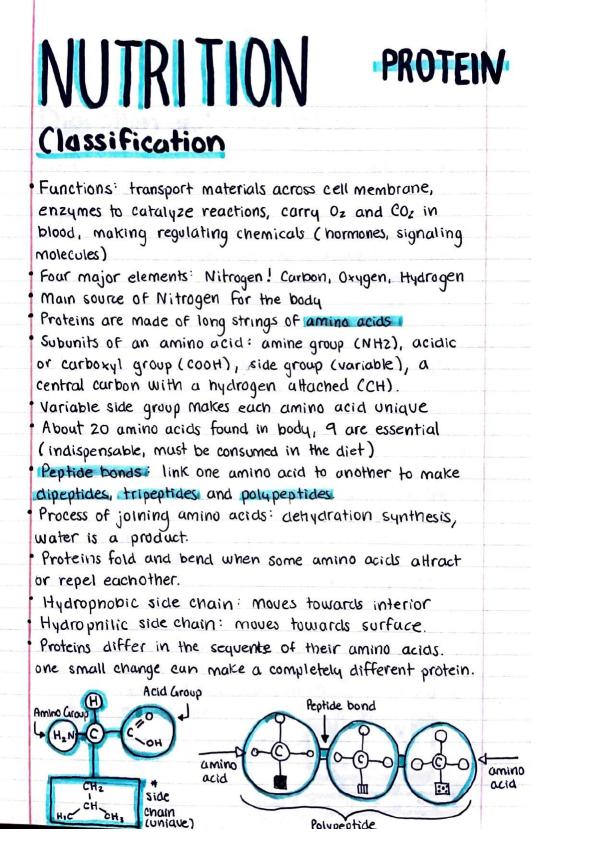 NUTRITION
PROTEIN
Classification
• Functions: transport materials across cell membrane,
enzymes to catalyze reactions, carry O₂ and CO₂ in
blood, making regulating chemicals (hormones, signaling
molecules)
• Four major elements: Nitrogen! Carbon, Oxygen, Hydrogen
• Main source of Nitrogen for the body
• Proteins are made of long strings of amino acids
• Subunits of an amino acid: amine group (NH2), acidic
or carboxyl group (COOH), side group (variable), a
central carbon with a hydrogen attached (CH).
• Variable side group makes each amino acid unique
• About 20 amino acids found in body, 9 are essential
(indispensable, must be consumed in the diet)
• Peptide bonds: link one amino acid to another to make
dipeptides, tripeptides and polypeptides
• Process of joining amino acids: dehydration synthesis,
water is a product.
• Proteins fold and bend when some amino acids attract
or repel eachother.
• Hydrophobic side chain: moves towards interior
• Hydrophilic side chain: moves towards surface.
• Proteins differ in the sequence of their amino acids.
one small change can make a completely different protein.
Amino Group
H
Acid Group
H₂N
C
C
O
OH
CH₂
CH
H₃C
CH₃
* side
chain
(unique)
Peptide bond
amino
acid
C
C
C
amino
acid
Polypeptide